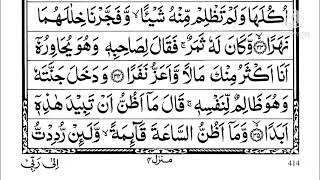 اُكُلَهَا وَلَمْ تَظْلِمْ مِّنْهُ شَيْـًٔا ۙ وَّفَجَّرْنَا خِلٰلَهُمَا
نَهَرًا ۙ﴿۳۳﴾ وَّكَانَ لَهٗ ثَمَرٌ ۚ فَقَالَ لِصَاحِبِهٖ وَهُوَ يُحَاوِرُهٗۤ
اَنَا اَكْثَرُ مِنْكَ مَالًا وَّاَعَزُّ نَفَرًا ﴿۳۴﴾ وَدَخَلَ جَنَّتَهٗ
وَهُوَ ظَالِمٌ لِّنَفْسِهٖ ۚ قَالَ مَاۤ اَظُنُّ اَنْ تَبِيْدَ هٰذِهٖۤ
اَبَدًا ۙ﴿۳۵﴾ وَّمَاۤ اَظُنُّ السَّاعَةَ قَآئِمَةً ۙ وَّلَئِنْ رُّدِدْتُّ
اِلٰى رَبِّيْ منزل۴ 414